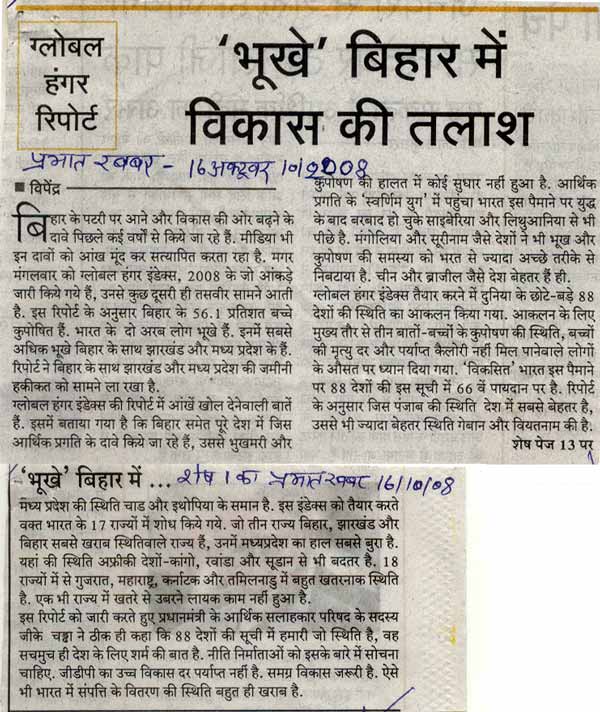 ग्लोबल
हंगर
रिपोर्ट
‘भूखे’ बिहार में
विकास की तलाश
प्रभात खबर - 16 अक्टूबर 10/2008
■ विपेंद्र
बिहार के पटरी पर आने और विकास की ओर बढ़ने के
दावे पिछले कई वर्षों से किये जा रहे हैं. मीडिया भी
इन दावों को आंख मूंद कर सत्यापित करता रहा है. मगर
मंगलवार को ग्लोबल हंगर इंडेक्स, 2008 के जो आंकड़े
जारी किये गये हैं, उनसे कुछ दूसरी ही तसवीर सामने आती
है. इस रिपोर्ट के अनुसार बिहार के 56.1 प्रतिशत बच्चे
कुपोषित हैं. भारत के दो अरब लोग भूखे हैं. इनमें सबसे
अधिक भूखे बिहार के साथ झारखंड और मध्य प्रदेश के हैं.
रिपोर्ट ने बिहार के साथ झारखंड और मध्य प्रदेश की जमीनी
हकीकत को सामने ला रखा है.
ग्लोबल हंगर इंडेक्स की रिपोर्ट में आंखें खोल देनेवाली बातें
हैं. इसमें बताया गया है कि बिहार समेत पूरे देश में जिस
आर्थिक प्रगति के दावे किये जा रहे हैं, उससे भुखमरी और
कुपोषण की हालत में कोई सुधार नहीं हुआ है. आर्थिक
प्रगति के ‘स्वर्णिम युग’ में पहुंचा भारत इस पैमाने पर युद्ध
के बाद बरबाद हो चुके साइबेरिया और लिथुआनिया से भी
पीछे है. मंगोलिया और सूरीनाम जैसे देशों ने भी भूख और
कुपोषण की समस्या को भरत से ज्यादा अच्छे तरीके से
निबटाया है. चीन और ब्राजील जैसे देश बेहतर हैं ही.
ग्लोबल हंगर इंडेक्स तैयार करने में दुनिया के छोटे-बड़े 88
देशों की स्थिति का आकलन किया गया. आकलन के लिए
मुख्य तौर से तीन बातों-बच्चों के कुपोषण की स्थिति, बच्चों
की मृत्यु दर और पर्याप्त कैलोरी नहीं मिल पानेवाले लोगों
के औसत पर ध्यान दिया गया. ‘विकसित’ भारत इस पैमाने
पर 88 देशों की इस सूची में 66 वें पायदान पर है. रिपोर्ट
के अनुसार जिस पंजाब की स्थिति देश में सबसे बेहतर है,
उससे भी ज्यादा बेहतर स्थिति गेबान और वियतनाम की है.
शेष पेज 13 पर
‘भूखे’ बिहार में ...
शेष 1 का प्रभात खबर 16/10/08
मध्य प्रदेश की स्थिति चाड और इथोपिया के समान है. इस इंडेक्स को तैयार करते
वक्त भारत के 17 राज्यों में शोध किये गये. जो तीन राज्य बिहार, झारखंड और
बिहार सबसे खराब स्थितिवाले राज्य हैं, उनमें मध्यप्रदेश का हाल सबसे बुरा है.
यहां की स्थिति अफ्रीकी देशों-कांगो, रवांडा और सूडान से भी बदतर है. 18
राज्यों में से गुजरात, महाराष्ट्र, कर्नाटक और तमिलनाडु में बहुत खतरनाक स्थिति
है. एक भी राज्य में खतरे से उबरने लायक काम नहीं हुआ है.
इस रिपोर्ट को जारी करते हुए प्रधानमंत्री के आर्थिक सलाहकार परिषद के सदस्य
जीके चड्ढा ने ठीक ही कहा कि 88 देशों की सूची में हमारी जो स्थिति है, वह
सचमुच ही देश के लिए शर्म की बात है. नीति निर्माताओं को इसके बारे में सोचना
चाहिए. जीडीपी का उच्च विकास दर पर्याप्त नहीं है. समग्र विकास जरूरी है. ऐसे
भी भारत में संपत्ति के वितरण की स्थिति बहुत ही खराब है.